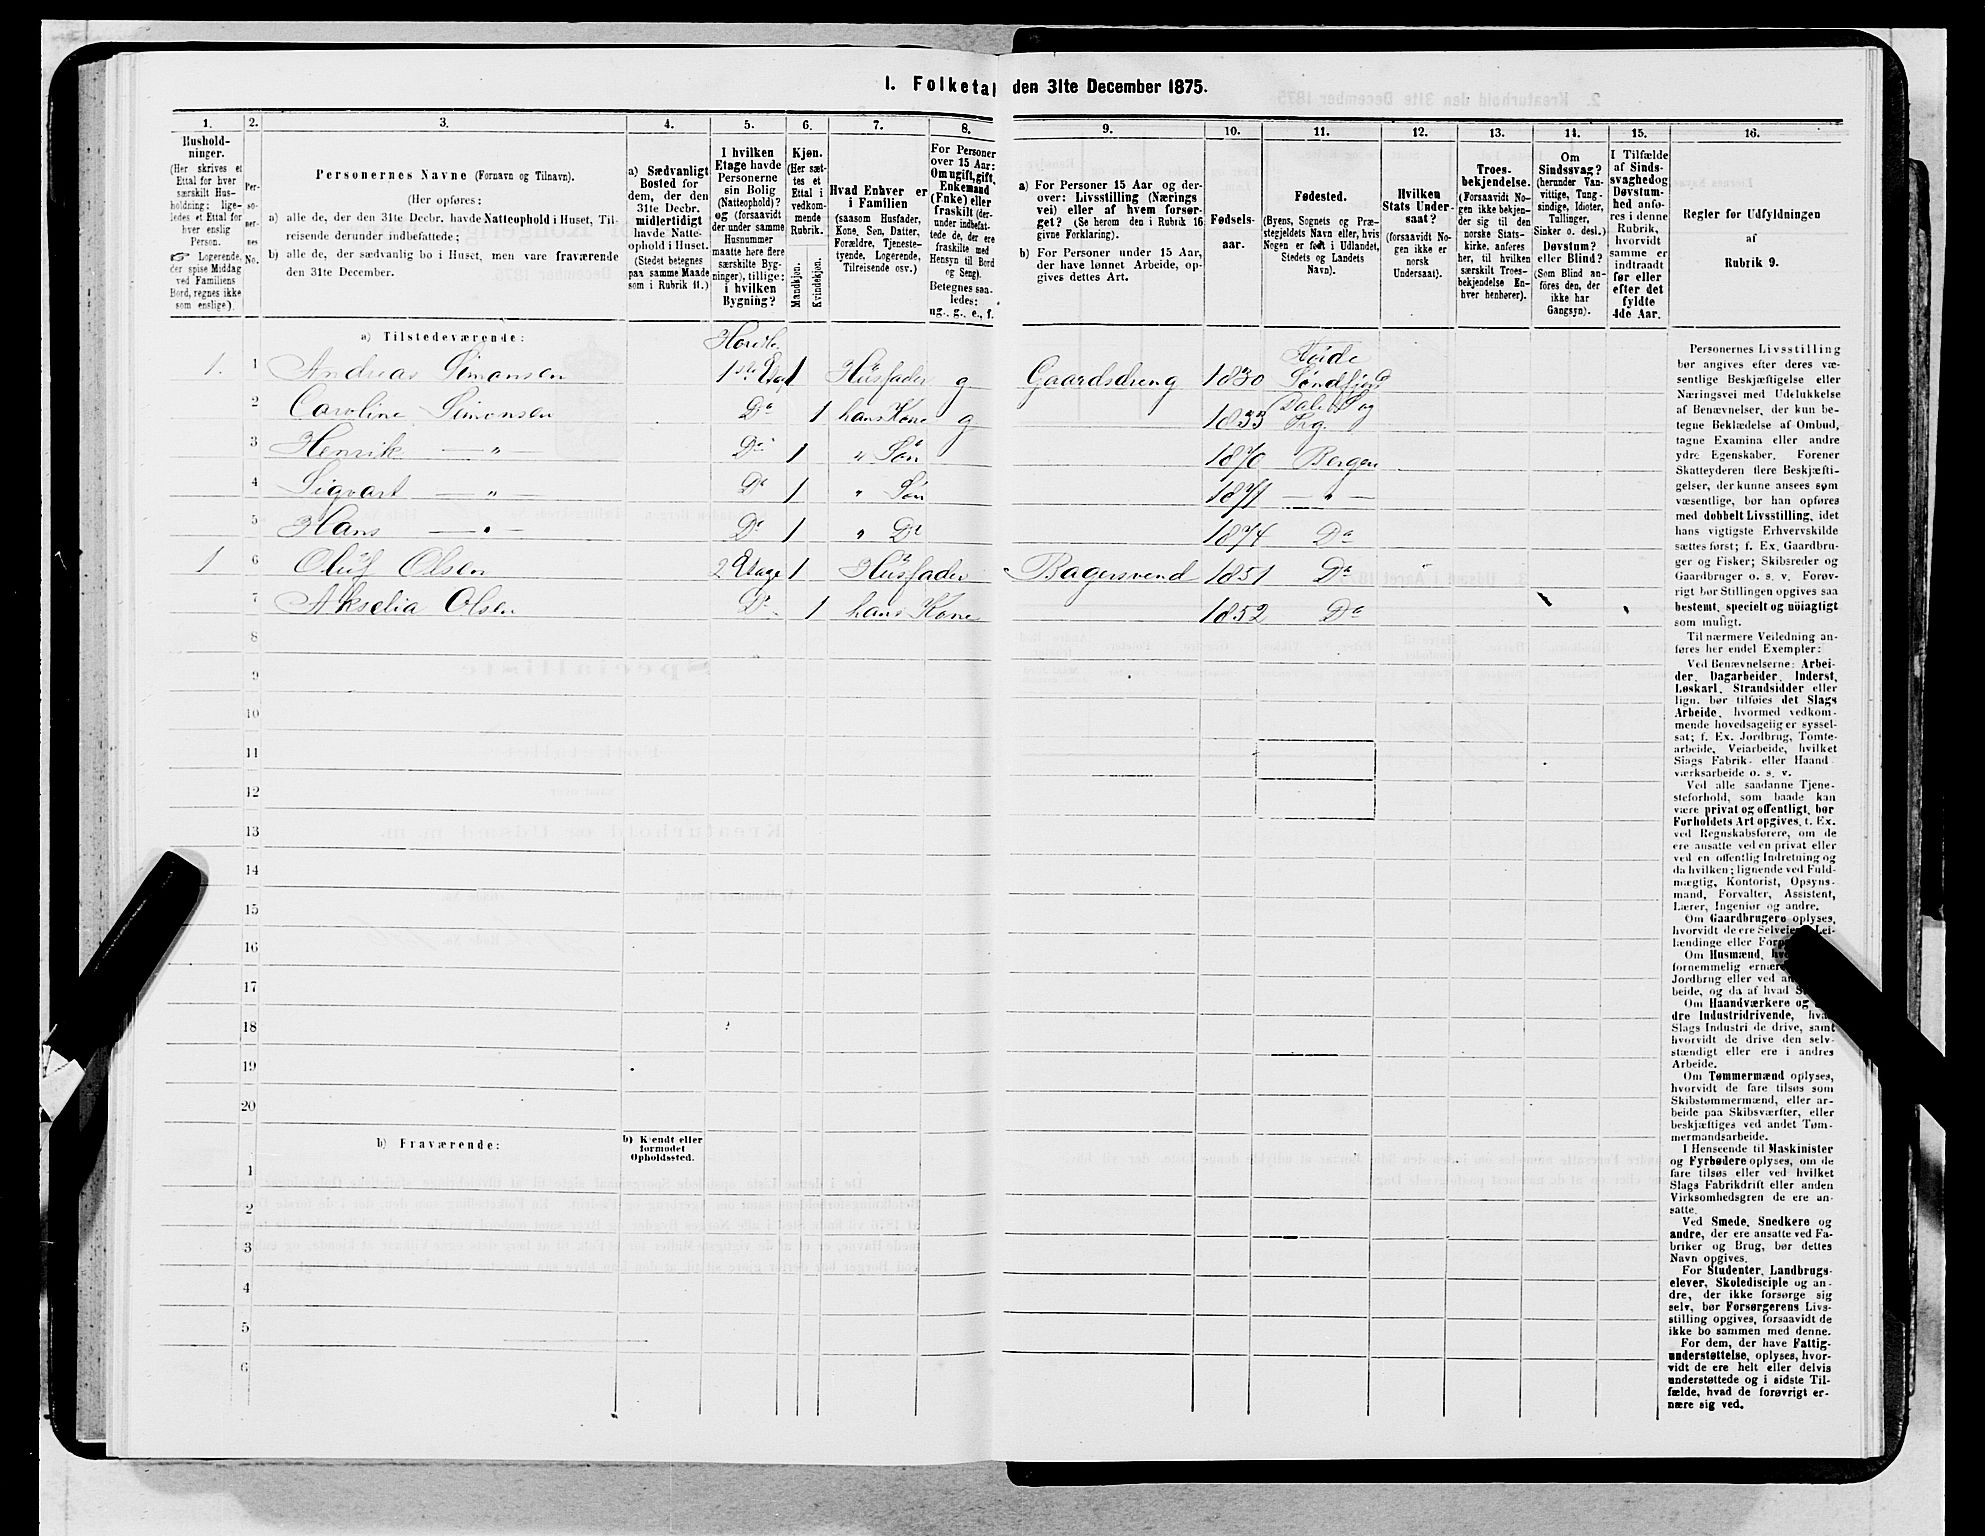 1. Folketal den 31te December 1875.
1.
Hushold-
ninger.
(Her skrives et
Ettal for hver
særskilt Hus-
holdning; lige-
ledes et Ettal for
hver enslig
Person.
☞ Logerende,
der spise Middag
ved Familiens
Bord, regnes ikke
som enslige).
2.
Per-
so-
ner-
nes
No.
3.
Personernes Navne (Fornavn og Tilnavn).
(Her opføres:
a) alle de, der den 31te Decbr. havde Natteophold i Huset, Til-
reisende derunder indbefattede;
b) alle de, der sædvanlig bo i Huset, men vare fraværende
den 31te December.
4.
a) Sædvanligt
Bosted for
dem, der den
31te Decbr.
midlertidigt
havde Natte-
ophold i Huset.
(Stedet betegnes
paa samme Maade
som i Rubrik 11.)
5.
I hvilken
Etage havde
Personerne
sin Bolig
(Natteophold)?
og (forsaavidt
der under samme
Husnummer
maatte høre flere
særskilte Byg-
ninger), tillige:
i hvilken
Bygning?
6.
Kjøn.
(Her sæt-
tes et
Ettal i
vedkom-
mende
Rubrik.
Mandkjøn.
Kvindekjøn.
7.
Hvad Enhver er
i Familien
(saasom Husfader,
Kone, Søn, Datter,
Forældre, Tjeneste-
tyende, Logerende,
Tilreisende osv.)
8.
For Personer
over 15 Aar:
Om ugift, gift,
Enkemand
(Enke) eller
fraskilt (der-
under indbefat-
tede de, der ere
fraskilte med
Hensyn til Bord
og Seng).
Betegnes saa-
ledes:
ug., g., e., f.
9.
a) For Personer 15 Aar og der-
over: Livsstilling (Nærings
vei) eller af hvem forsør-
get? (Se herom den i Rubrik 16
givne Forklaring).
b) For Personer under 15 Aar,
der have lønnet Arbeide, op-
gives dettes Art.
10.
Fødsels-
aar.
11.
Fødested.
(Byens, Sognets og Præ-
stegjeldets Navn eller, hvis
Nogen er født i Udlandet,
Stedets og Landets
Navn).
12.
Hvilken
Stats Under-
saat?
(forsaavidt No-
gen ikke er
norsk
Undersaat).
13.
Troes-
bekjendelse.
(Forsaavidt No-
gen ikke bekjen-
der sig til den
norske Stats-
kirke, anføres
her, til hvilken
særskilt Troes-
bekjendelse En-
hver henhører).
14.
Om
Sindssvag?
(herunder Van-
vittige, Tung-
sindige, Idioter,
Tullinger,
Sinker o. desl.)
Døvstum?
eller Blind?
(Som Blind an-
føres den, der
ikke har
Gangsyn).
15.
I Tilfælde
af Sinds-
svaghed og
Døvstum-
hed anfø-
res i denne
Rubrik,
hvorvidt
samme er
indtraadt
før eller
efter det
fyldte
4de Aar.
16.
Regler for Udfyldningen
af
Rubrik 9.
a) Tilstedeværende:
1. 1 Andreas Simonsen 1ste Etag 1 Husfader g Gaardsdreng 1830 Søndfjord
2 Caroline Simonsen Do 1 hans Kone g 1833 Dale Sog Prg.
3 Henrik — " — Do 1 " Søn 1870 Bergen
4 Sigvart — " — Do 1 " Søn 1871 — " —
5 Hans — " — Do 1 " Do 1874 Do
1 6 Oluf Olsen 2 Etage 1 Husfader Bagersvend 1851 Do
7 Akselia Olsen Do 1 hans Kone 1852 Do
8
9
10
11
12
13
14
15
16
17
18
19
20
b) Fraværende:
b) Kjendt eller
formodet
Opholdssted.
1
2
3
4
5
6
Personernes Livsstilling
bør angives efter deres væ-
sentlige Beskjæftigelse eller
Næringsvei med Udelukkelse
af Benævnelser, der kun be-
tegne Beklædelse af Ombud,
tagne Examina eller andre
ydre Egenskaber. Forener
Skatteyderen flere Beskjæfti-
gelser, der kunne ansees som
væsentlige, bør han opføres
med dobbelt Livsstilling, idet
hans vigtigste Erhvervskilde
sættes først; f. Ex. Gaardbru-
ger og Fisker; Skibsreder og
Gaardbruger o. s. v. Forøv-
rigt bør Stillingen opgives saa
bestemt, specielt og nöiagtigt
som muligt.
Til nærmere Veiledning an-
føres her endel Exempler:
Ved Benævnelserne: Arbei-
der, Dagarbeider, Inderst,
Løskarl, Strandsidder eller
lign. bør tilføies det Slags
Arbeide, hvormed vedkom-
mende hovedsagelig er syssel-
sat; f. Ex. Jordbrug, Tomte-
arbeide, Veiarbeide, hvilket
Slags Fabrik- eller Haand
værksarbeide o. s. v.
Ved alle saadanne Tjene-
steforhold, som baade kan
være privat og offentligt, bør
Forholdets Art opgives, t. Ex.
ved Regnskabsførere, om de
ere ansatte ved en privat eller
ved en offentlig Indretning og
da hvilken; lignende ved Fuld-
mægtig, Kontorist, Opsyns-
mand, Forvalter, Assistent,
Lærer, Ingeniør og andre.
Om Gaardbrugere oplyses,
hvorvidt de ere Selveiere, Lei-
lændinge eller
Om Husmænd,
fornemmelig
Jordbrug eller ved
beide, og da af hvad
Om Haandværkere og
dre Industridrivende,
Slags Industri de drive, samt
hvorvidt de drive den selv-
stændigt eller ere i andres
Arbeide.
Om Tømmermænd oplyses,
hvorvidt de fare tilsøs som
Skibstømmermænd, eller ar-
beide paa Skibsværfter, eller
beskjæftiges ved andet Tøm-
mermandsarbeide.
I Henseende til Maskinister
og Fyrbødere oplyses, om de
fare tilsøs eller ved hvilket
Slags Fabrikdrift eller anden
Virksomhedsgren de ere an-
satte.
Ved Smede, Snedkere og
andre, der ere ansatte ved Fa-
briker og Brug, bør dettes
Navn opgives.
For Studenter, Landbrugs-
elever, Skoledisciple og an-
dre, der ikke forsørge sig
selv, bør Forsørgerens Livs-
stilling opgives, forsaavidt de
ikke bo sammen med denne.
For dem, der have Fattig-
understøttelse, oplyses, hvor-
vidt de ere helt eller delvis
understøttede og i sidste Til-
fælde, hvad de forøvrigt er-
nære sig ved.